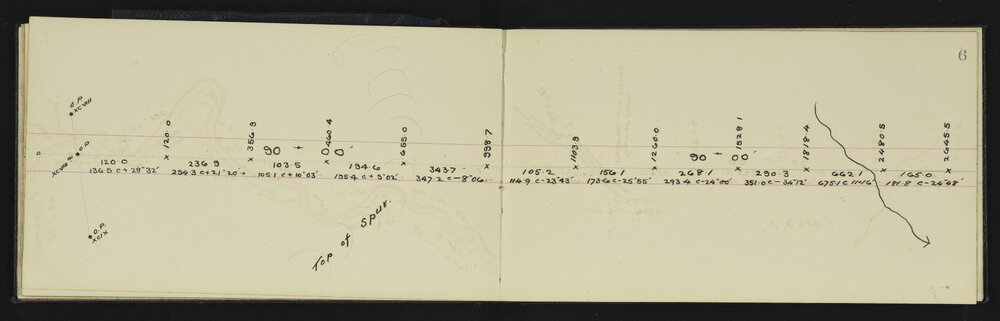 6
O.P.
XCVIII
O.P.
O.P.
XCIX
0
x 120.0
x 356.9
x 460.4
x 655.0
x 998.7
x 1103.9
x 1260.0
x 1528.1
x 1818.4
x 2480.5
x 2645.5
90 + 00'
90 + 00'
120.0 236.9 103.5 194.6 343.7 105.2 156.1 268.1 290.3 662.1 165.0
136.5 C + 28°32' 254.3 C + 21°20' 105.1 C + 10°03' 195.4 C + 5°02' 347.2 C - 8°06' 114.9 C - 23°43' 173.6 C - 25°55' 293.4 C - 24°00' 351.0 C - 34°12' 675.1 C 181.8 C - 24°48'
Top of Spur.